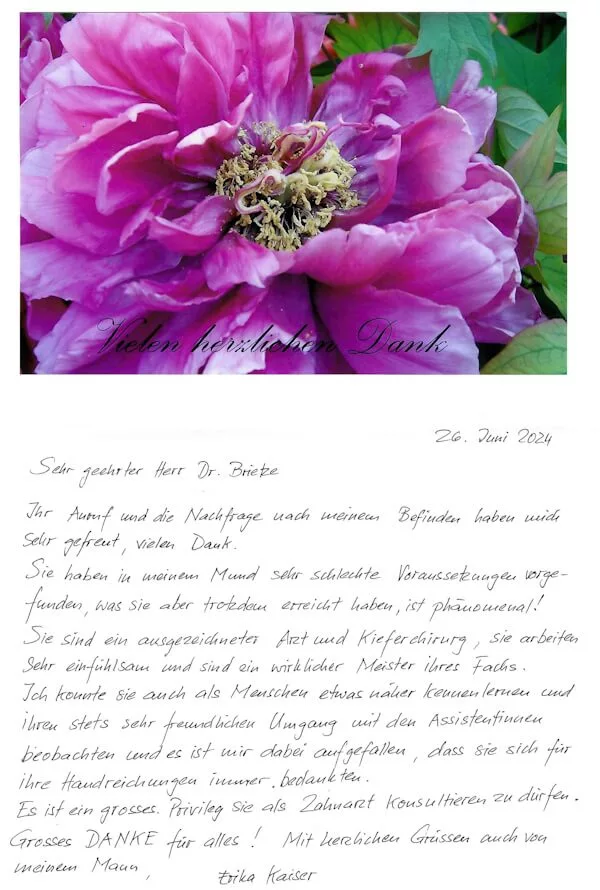 Vielen herzlichen Dank
26. Juni 2024
Sehr geehrter Herr Dr. Brietze
Ihr Anruf und die Nachfrage nach meinem Befinden haben mich
sehr gefreut, vielen Dank.
Sie haben in meinem Mund sehr schlechte Voraussetzungen vorge-
funden, was sie aber trotzdem erreicht haben, ist phänomenal!
Sie sind ein ausgezeichneter Arzt und Kieferchirurg, sie arbeiten
sehr einfühlsam und sind ein wirklicher Meister ihres Fachs.
Ich konnte sie auch als Menschen etwas näher kennenlernen und
ihren stets sehr freundlichen Umgang mit den Assistentinnen
beobachten und es ist mir dabei aufgefallen, dass sie sich für
ihre Handreichungen immer bedankten.
Es ist ein grosses Privileg sie als Zahnarzt konsultieren zu dürfen.
Grosses DANKE für alles! Mit herzlichen Grüssen auch von
meinem Mann, Erika Kaiser